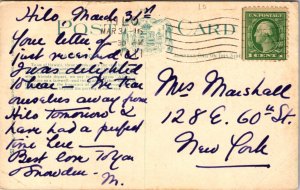 Hilo, March 31st
POST CARD
MAR 31
U.S. POSTAGE
1 CENT 1
Your letter
just received &
I was delighted
to hear — We tear
ourselves away from
Hilo tomorrow &
have had a perfect
time here —
Best love to you
Snowden
M.
Mrs Marshall
128 E. 60th St.
New York